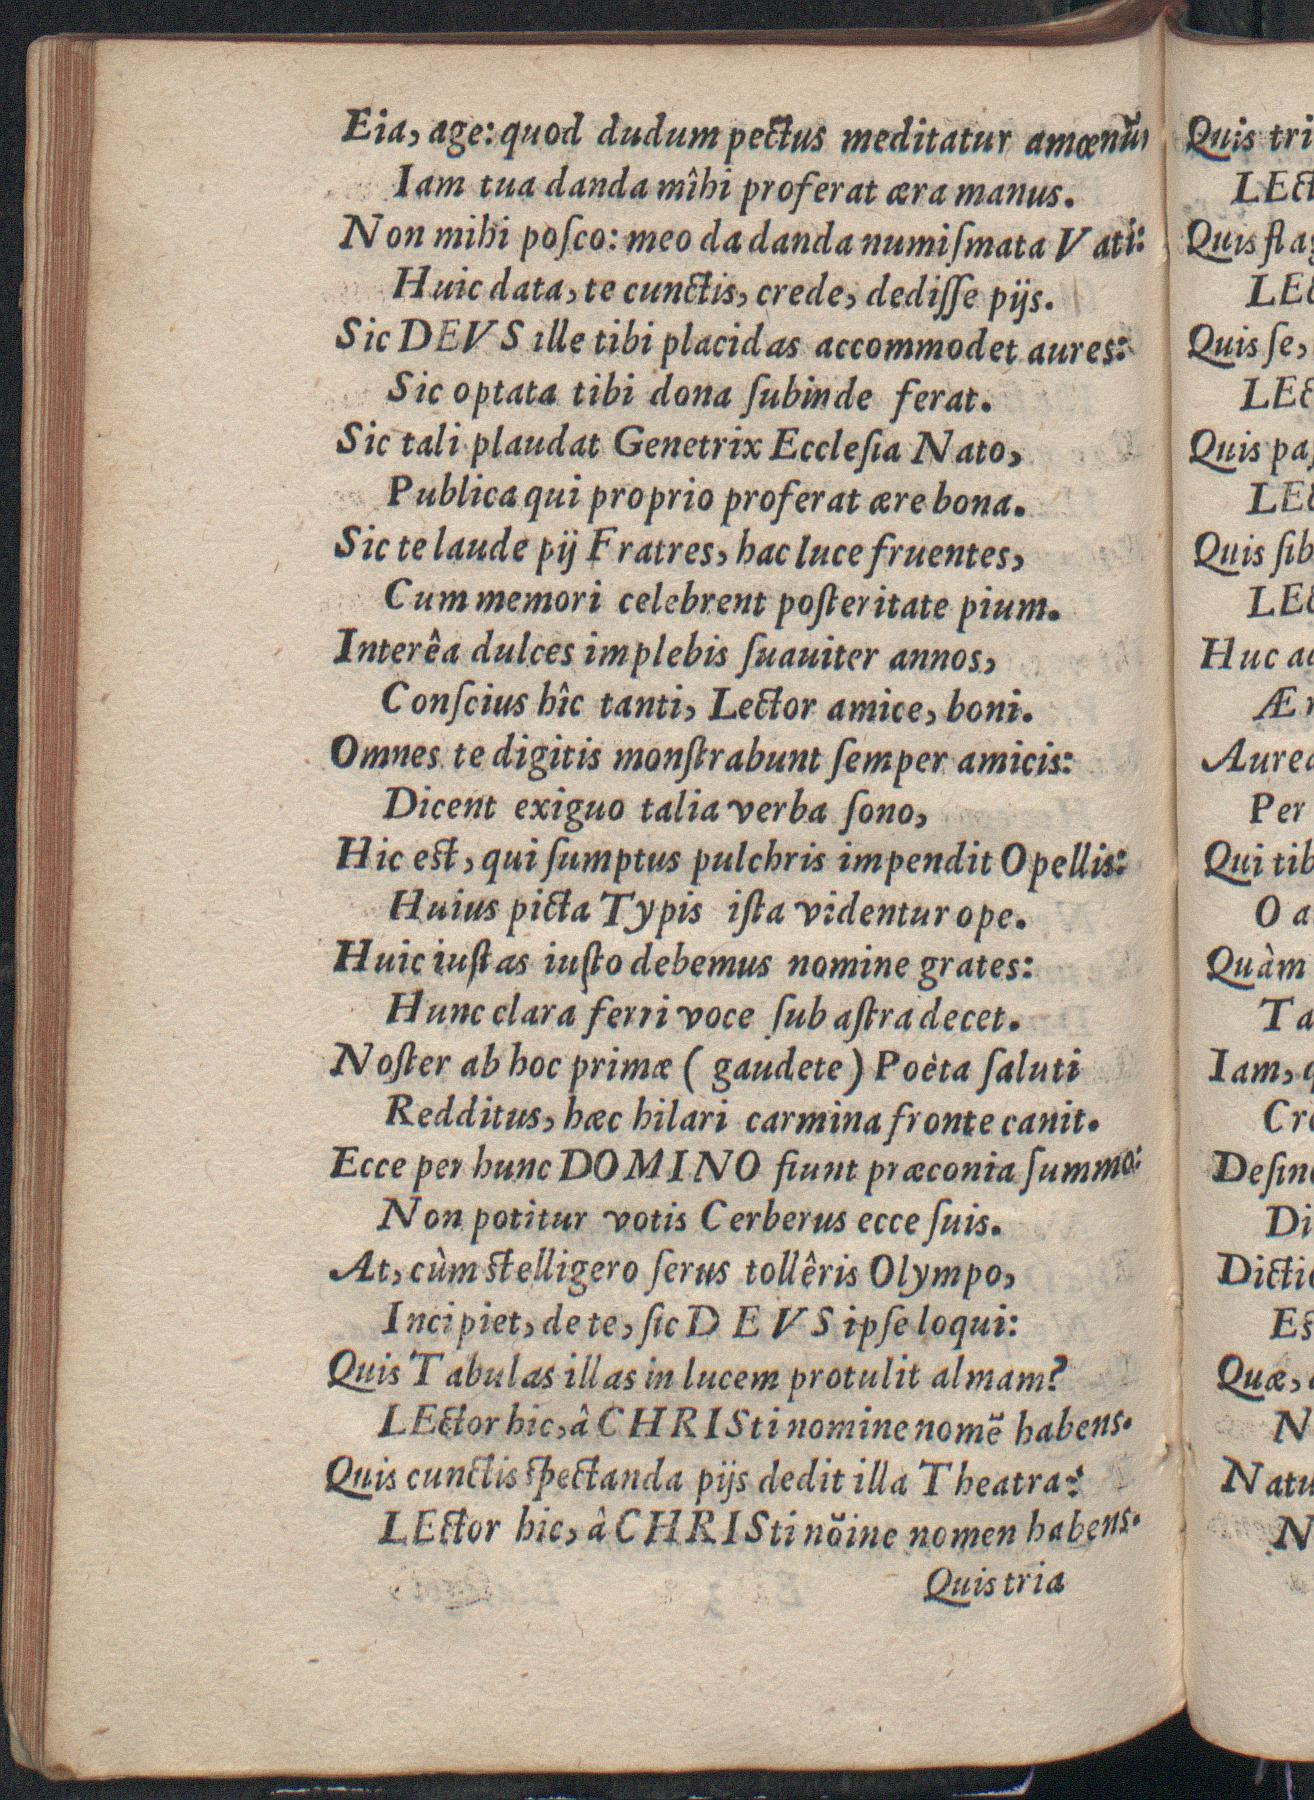 Eia, age: quod dudum pectus meditatur amœnũ,
Iam tua danda mîhi proferat æra manus.
Non mihi poſco: meo da danda numiſmata Vati:
Huic data, te cunctis, crede, dediſſe pijs.
Sic DEVS ille tibi placidas accommodet aures:
Sic optata tibi dona ſubinde ferat.
Sic tali plaudat Genetrix Eccleſia Nato,
Publica qui proprio proferat ære bona.
Sic te laude pij Fratres, hac luce fruentes,
Cum memori celebrent poſteritate pium.
Interêa dulces implebis ſuauiter annos,
Conſcius hîc tanti, Lector amice, boni.
Omnes te digitis monſtrabunt ſemper amicis:
Dicent exiguo talia verba ſono,
Hic est, qui ſumptus pulchris impendit Opellis:
Huius picta Typis iſta videntur ope.
Huic iuſtas iuſto debemus nomine grates:
Hunc clara ferri voce ſub aſtra decet.
Noſter ab hoc primæ ( gaudete ) Poèta ſaluti
Redditus, hæc hilari carmina fronte canit.
Ecce per hunc DOMINO fiunt præconia ſummo:
Non potitur votis Cerberus ecce ſuis.
At, cùm stelligero ſerus tollêris Olympo,
Incipiet, de te, ſic DEVS ipſe loqui:
Quis Tabulas illas in lucem protulit almam?
LEctor hic, â CHRISti nomine nomẽ habens.
Quis cunctis spectanda pijs dedit illa Theatra?
LEctor hic, â CHRISti nõine nomen habens.
Quis tria
Quis tri
LEct
Quis flag
LEc
Quis ſe,
LEc
Quis paſ
LEc
Quis ſib
LEc
Huc ad
Æ
Aurea
Per
Qui tib
O a
Quàm
Ta
Iam, q
Cr
Deſin
Di
Dictio
Es
Quæ,
N
Natu
N